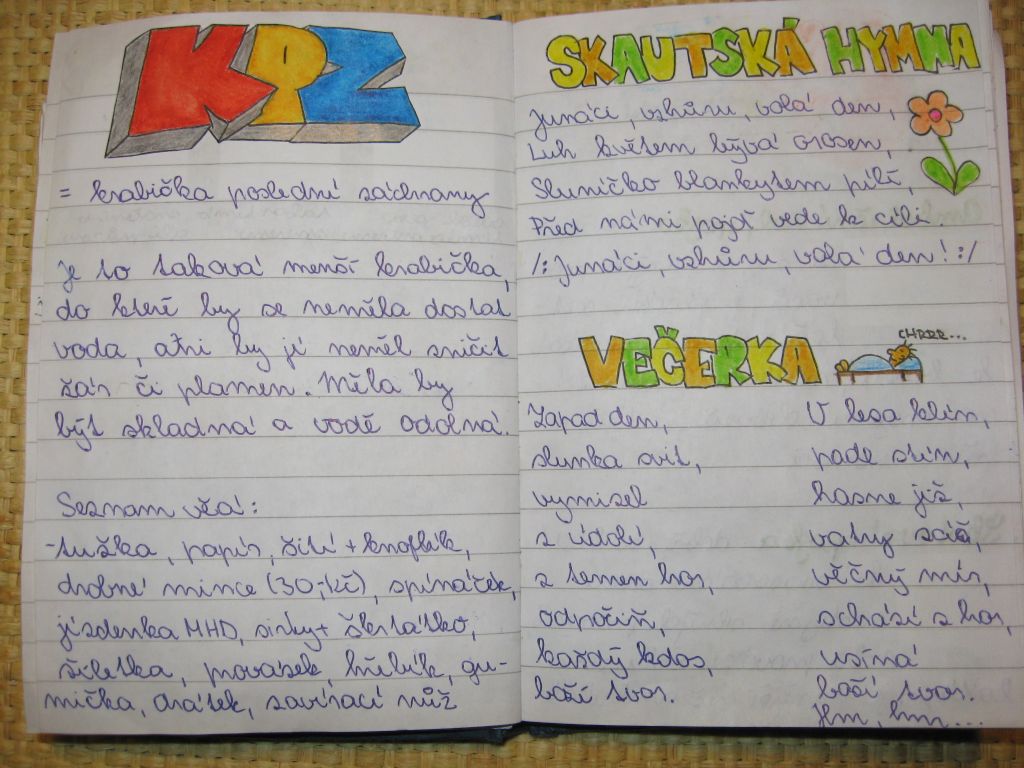 KPZ
= krabička poslední záchrany
je to taková menší krabička,
do které by se neměla dostat
voda, ani by jí neměl zničit
žár či plamen. Měla by
být skladná a vodě odolná.
Seznam věcí:
-tužka, papír, šití + knoflík,
drobné mince (30,-kč), spínáček,
jízdenka MHD, sirky + škrtátko,
žiletka, provázek, hřebík, gu-
mička, drátek, zavírací nůž
SKAUTSKÁ HYMNA
Junáci, vzhůru, volá den,
Luh květem bývá orosen,
Sluníčko blankytem pílí,
Před námi pojď vede k cíli.
/: Junáci, vzhůru, volá den! :/
VEČERKA
CHRRR...
Zapad den,
slunka svit,
vymizel
z údolí,
z temen hor,
odpočiň,
každý kdos,
boží tvor.
V lesa klín,
pade stín,
hasne již,
vatry zář,
věčný mír,
schází z hor,
usíná
boží tvor.
Hm, hm...